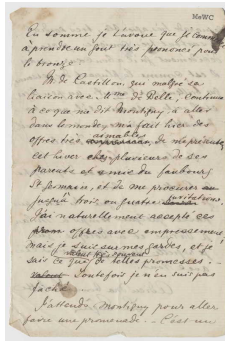 MaWC
En somme je t'avoue que je commence
à prendre un goût très prononcé pour
le bronze.
M. de Castillon qui malgré sa
liaison avec Mme de Belle, continue
à ce que me dit Montigny à aller
dans le monde, m'a fait hier des
offres très aimables de me présenter
cet hiver chez plusieurs de ses
parents et amis du faubourg
St Germain, et de me procurer
jusqu'à trois, ou quatre invitations.
J'ai naturellement accepté ces
offres avec empressement
mais je suis sur mes gardes, et je
sais ce que de telles promesses
valent. Toutefois je n'en suis pas
fâché.
J'attends Montigny pour aller
faire une promenade. C'est un